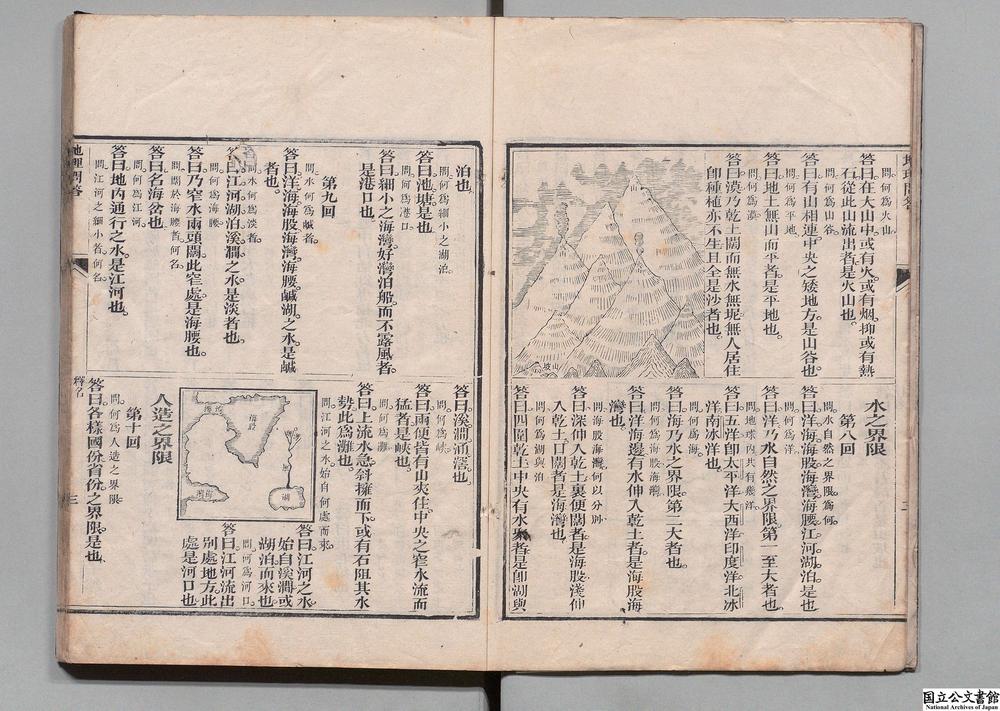 問何爲火山
答曰在大山中或有火或有烟抑或有熱
石從此山流出者是火山也。
問何爲山谷
答曰有山相連中央之矮地方是山谷也
問何爲平地
答曰地土無山而平者是平地也。
問何爲漠
答曰漠乃乾土闊而無水無坭無人居住
卽種植亦不生且全是沙者也。
山
坡山
水之界限
第八回
問水自然之界限爲何
答曰洋海海股海灣海腰江河湖泊是也
問何爲洋
答曰洋乃水自然之界限第一至大者也
問地球內共有幾洋
答曰五洋卽太平洋大西洋印度洋北冰
洋南冰洋也。
問何爲海
答曰海乃水之界限第二大者也。
問何爲海股海灣
答曰洋海邊有水伸入乾土者是海股海
灣也。
問海股海灣何以分別
答曰深伸入乾土裏便闊者是海股淺伸
入乾土口闊者是海灣也。
問何爲湖與泊
答曰四圍乾土中央有水聚者是卽湖與
泊也
問何爲細小之湖泊
答曰池塘是也
問何爲港口
答曰細小之海灣好灣泊船而不露風者
是港口也。
第九回
問水何爲鹹者。
答曰洋海海股海灣海腰鹹湖之水是鹹
者也。
問水何爲淡者。
答曰江河湖泊溪澗之水是淡者也。
問何爲海腰
答曰乃窄水兩頭闊此窄處是海腰也。
問關於海腰者何名
答曰名海岔也。
問何爲江河。
答曰地內通行之水是江河也。
問江河之細小者何名。
答曰溪澗涌滘也。
問何爲峽
答曰兩便皆有山夾住中央之窄水流而
猛者是峽也。
問何爲灘
答曰上流水急斜擁而下或有石阻其水
勢此爲灘也。
問江河之水始自何處而來
海股
湖
答曰江河之水
始自溪澗或
湖泊而來也
問何爲河口
答曰江河流出
別處地方此
處是河口也
人造之界限
第十回
問何爲人造之界限
答曰各樣國份省份之界限是也。
地理問答
釋名
三
国立公文書館
National Archives of Japan